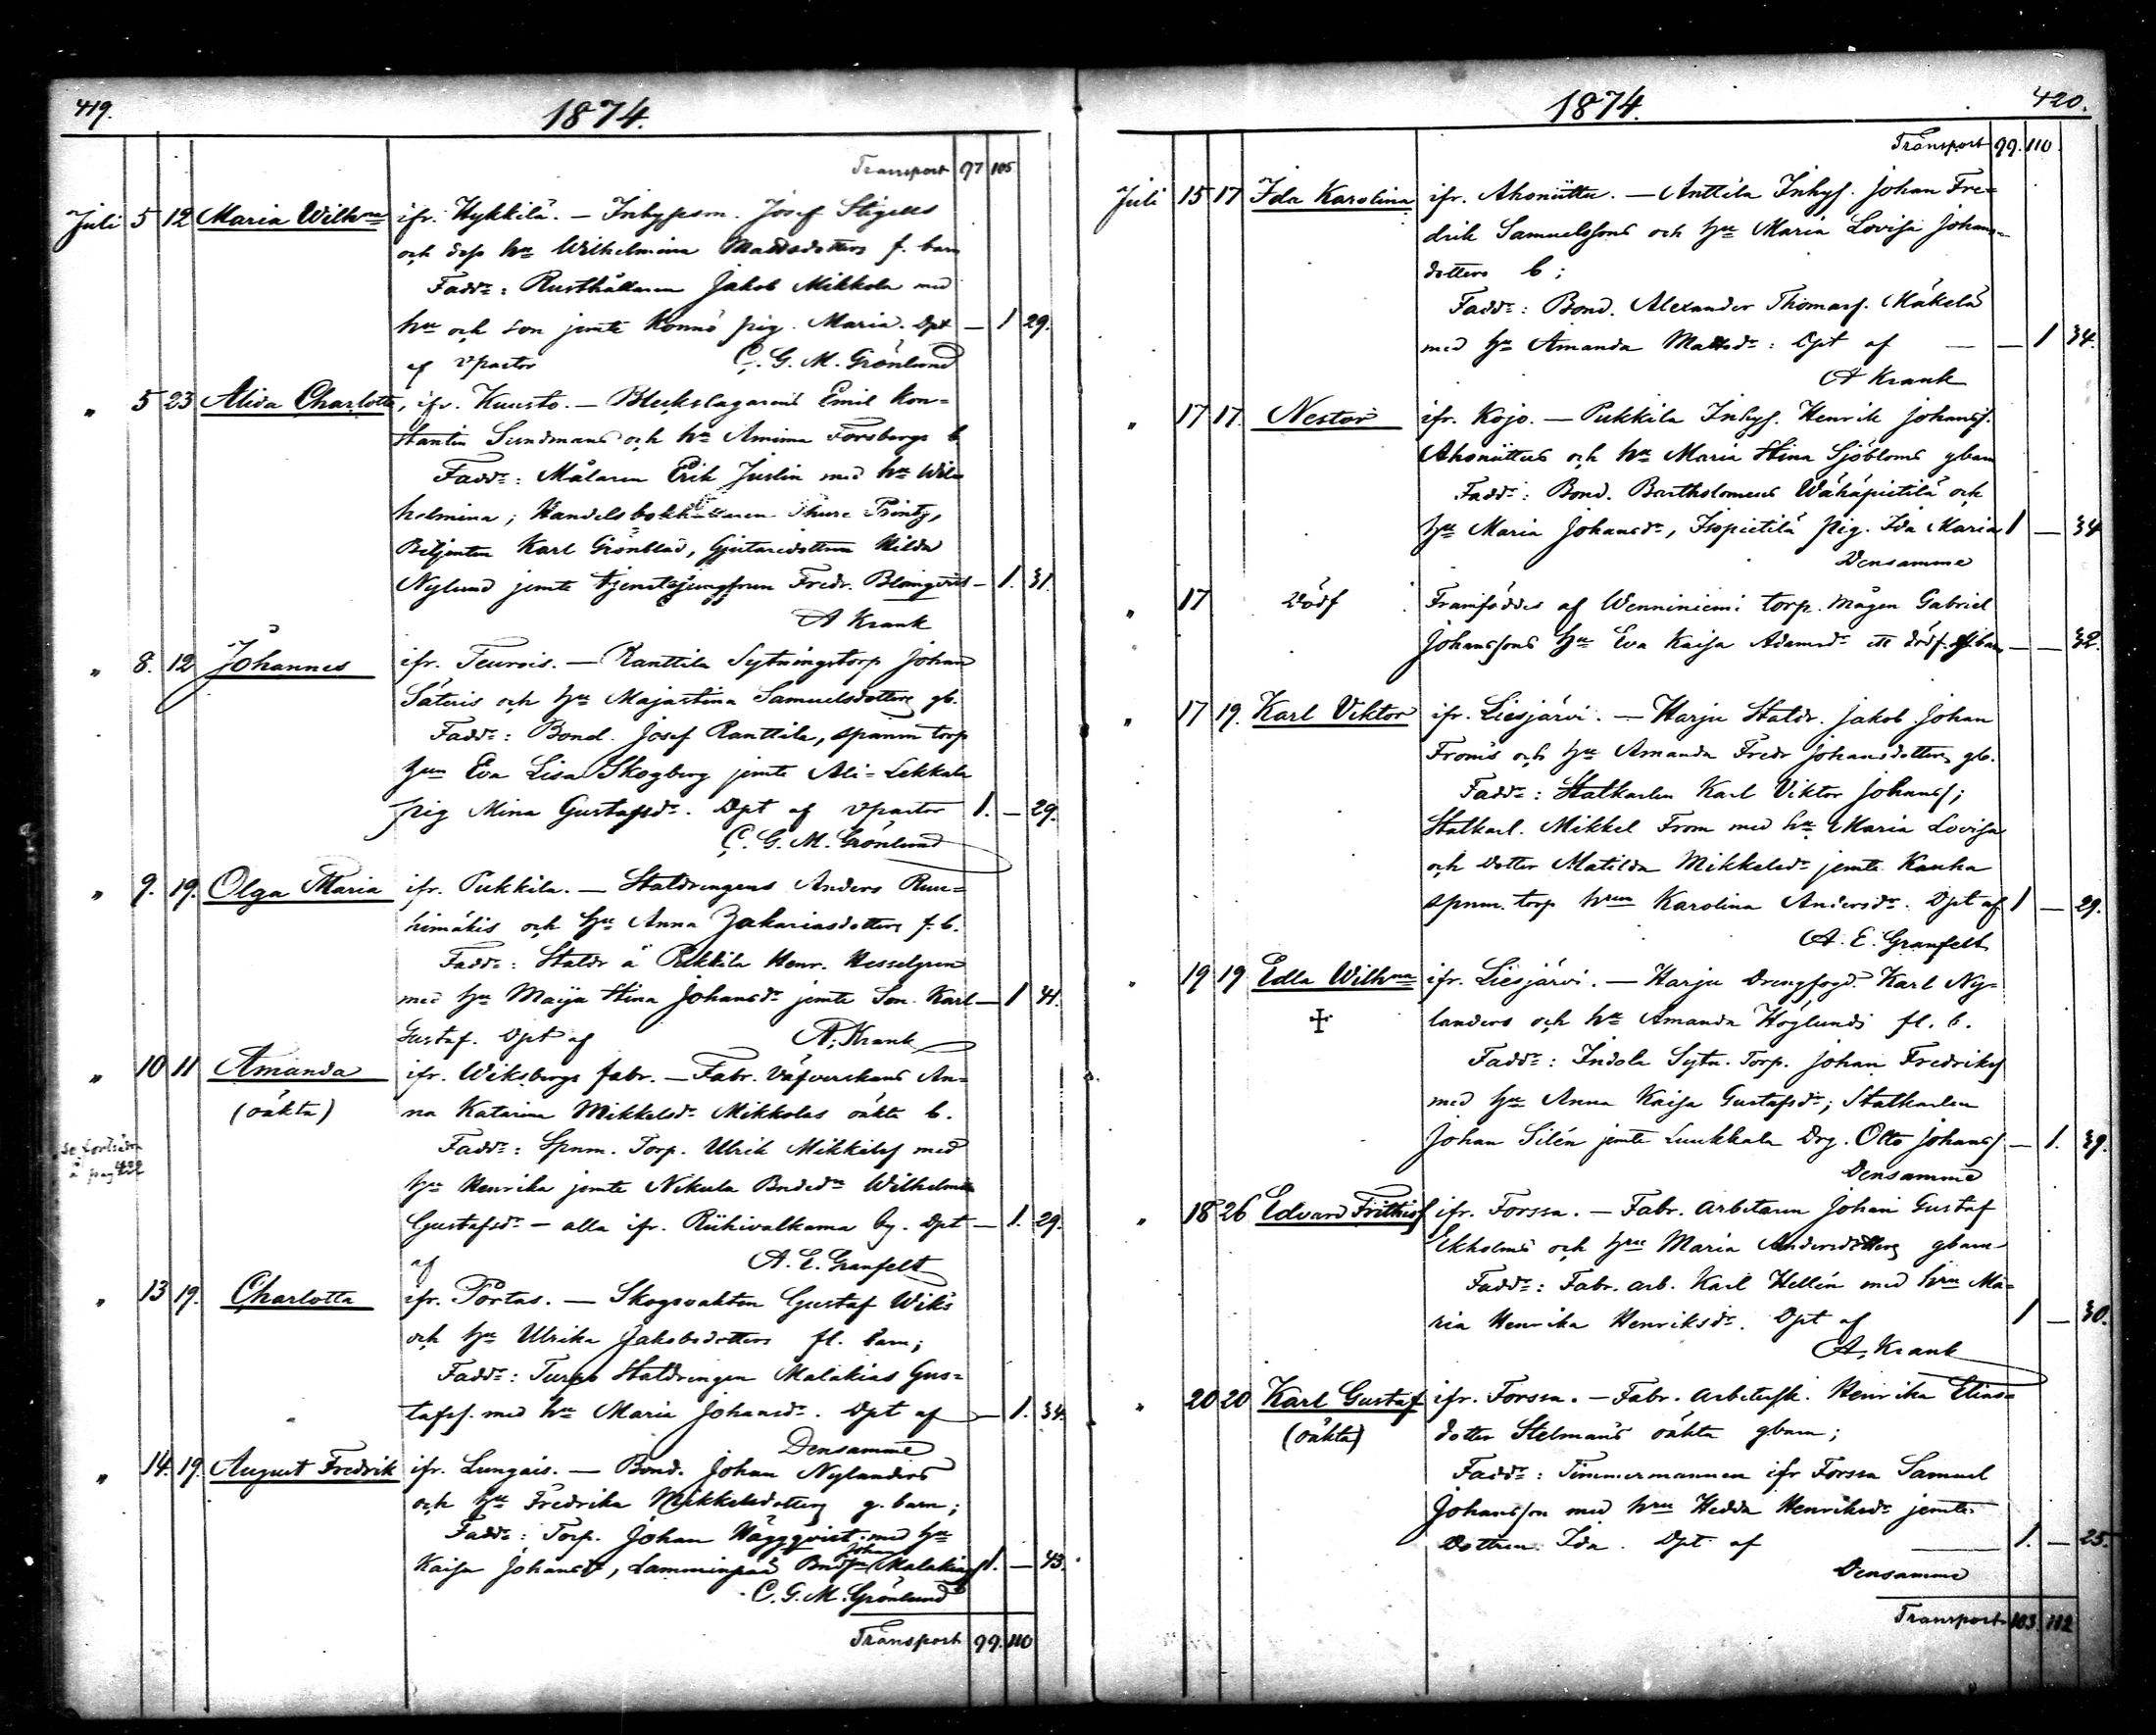 419.
1874.
Transport 97 105
Juli 5 12 Maria Wilhna ifr. Hykkilä. — Inhypesm. Josef Stigells
och dess hu Wilhelmina Mattsdotters f. barn
Faddr: Rusthållaren Jakob Mikkola med
hu och son jemte Konno pig. Maria. Dpt — 1 29.
af vpastor C. G. M. Grönlund
" 5 23 Alida Charlotta, ifr. Kuusto. — Bleckslagarens Emil Kon-
stantin Sundmans och hu Amima Forsbergs b.
Faddr: Målaren Erik Juslin med hu Wil-
helmina; Handelsbokhållaren Thure Printz,
Betjenten Karl Grönblad, Gjutaredottern Hilda
Nylund jemte tjenstejungfrun Fredr. Blomqvist — 1. 31.
A Krank
" 8. 12 Johannes ifr. Teurois. — Ranttila Sytningstorp Johan
Säteris och hu Majastina Samuelsdotters gb.
Faddr: Bond. Josef Ranttila, spanm torp
hun Eva Lisa Skogberg jemte Ali-Lekkala
pig Mina Gustafsdr. Dpt af vpastor 1. — 29.
C. G. M. Grönlund
" 9. 19. Olga Maria ifr. Pukkila. — Staldrengens Anders Ruu-
himäkis och hu Anna Zakariasdotters f. b.
Faddr: Staldr å Pukkila Henr. Hesselgren
med hu Maija Stina Johansdr jemte Son Karl — 1 41.
Gustaf. Dpt af A. Krank
" 10 11 Amanda ifr. Wiksbergs fabr. — Fabr. Väfverskans An-
(oäkta) na Katarina Mikkelsdr Mikkolas oäkta b.
se fortsättn
å pag 422
Faddr: Spnm. Torp. Ulrik Mikkelss med
hu Henrika jemte Nikula Bndsdr Wilhelmina
Gustafsdr — alla ifr. Riihivalkama by. Dpt — 1. 29.
af A. E. Granfelt
" 13 19. Charlotta ifr. Portas. — Skogsvakten Gustaf Wiks
och hu Ulrika Jakobsdotters fl. barn;
Faddr: Turpo Staldrengen Malakias Gus-
tafss. med hu Maria Johansdr. Dpt af — 1. 34.
Densamme
" 14. 19. August Fredrik ifr. Lungais. — Bond. Johan Nylanders
och hu Fredrika Mikkelsdotters g. barn;
Faddr: Torp. Johan Häggqvist med hu
Kaisa Johansdr, Lamminpää Johan Malakiass 1. — 43.
C. G. M. Grönlund
Transport 99. 110
420.
1874.
Transport 99. 110
Juli 15 17 Ida Karolina ifr. Ahoniittu. — Anttila Inhys. Johan Fre-
drik Samuelssons och hu Maria Lovisa Johans-
dotters b;
Faddr: Bond. Alexander Thomass. Mäkelä
med hu Amanda Mattsdr: Dpt af — — 1 34.
A Krank
" 17 17. Nestor ifr. Kojo. — Pukkila Inhys. Henrik Johanss.
Ahoniittus och hu Maria Stina Sjöbloms gbarn
Faddr: Bond. Bartholomeus Wähäpietilä och
hu Maria Johansdr, Isopietilä pig. Ida Maria 1 — 34
Densamme
" 17 Dödf Framföddes af Wenniniemi torp. mågen Gabriel
Johanssons hu Eva Kaisa Adamsdr ett dödf. barn — — 32.
" 17 19. Karl Viktor ifr. Liesjärvi. — Harju Staldr. Jakob Johan
Froms och hu Amanda Fredr Johansdotters gb.
Faddr: Statkarlen Karl Viktor Johanss;
Statkarl. Mikkel From med hu Maria Lovisa
och dotter Matilda Mikkelsdr jemte Kauha
spnm. torp hrun Karolina Andersdr. Dpt af 1 — 29.
A. E. Granfelt
" 19 19 Edla Wilhna ifr. Liesjärvi. — Harju Drengfogd. Karl Ny-
landers och hu Amanda Höglunds fl. b.
Faddr: Indola Sytn. Torp. Johan Fredrikss
med hu Anna Kaisa Gustafsdr; Statkarlen
Johan Silén jemte Luukkala Drg. Otto Johanss — 1. 39.
Densamme
" 18 26 Edvard Frithiof ifr. Forssa. — Fabr. arbetaren Johan Gustaf
Ekholms och hru Maria Andersdotters gbarn
Faddr: Fabr. arb. Karl Hellén med hru Ma-
ria Henrika Henriksdr. Dpt af 1 — 30.
A. Krank
" 20 20 Karl Gustaf ifr. Forssa. — Fabr. arbetersk. Henrika Elias-
(oäkta) dotter Stelmans oäkta gbarn;
Faddr: Timmermannen ifr Forssa Samuel
Johansson med hru Hedda Henriksdr jemte
Dottren Ida. Dpt af 1. — 25.
Densamme
Transport 103 112